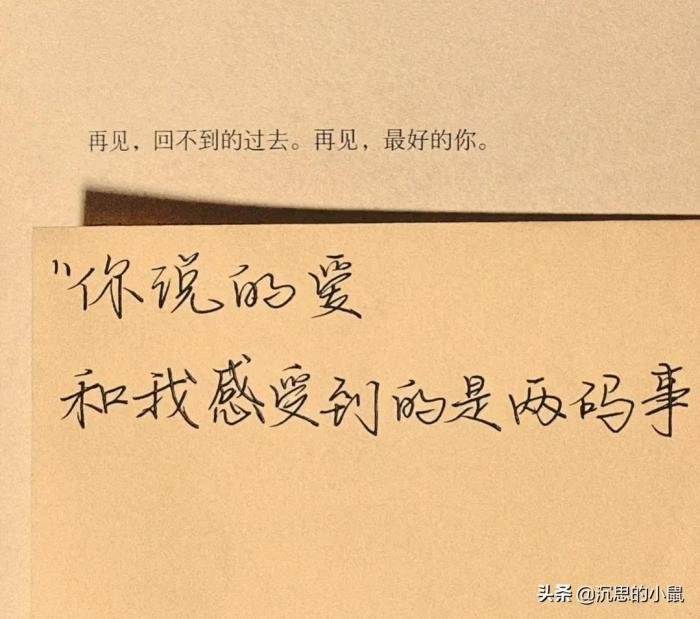 再见，回不到的过去。再见，最好的你。
"你说的爱
和我感受到的是两码事
头条 @沉思的小鼠